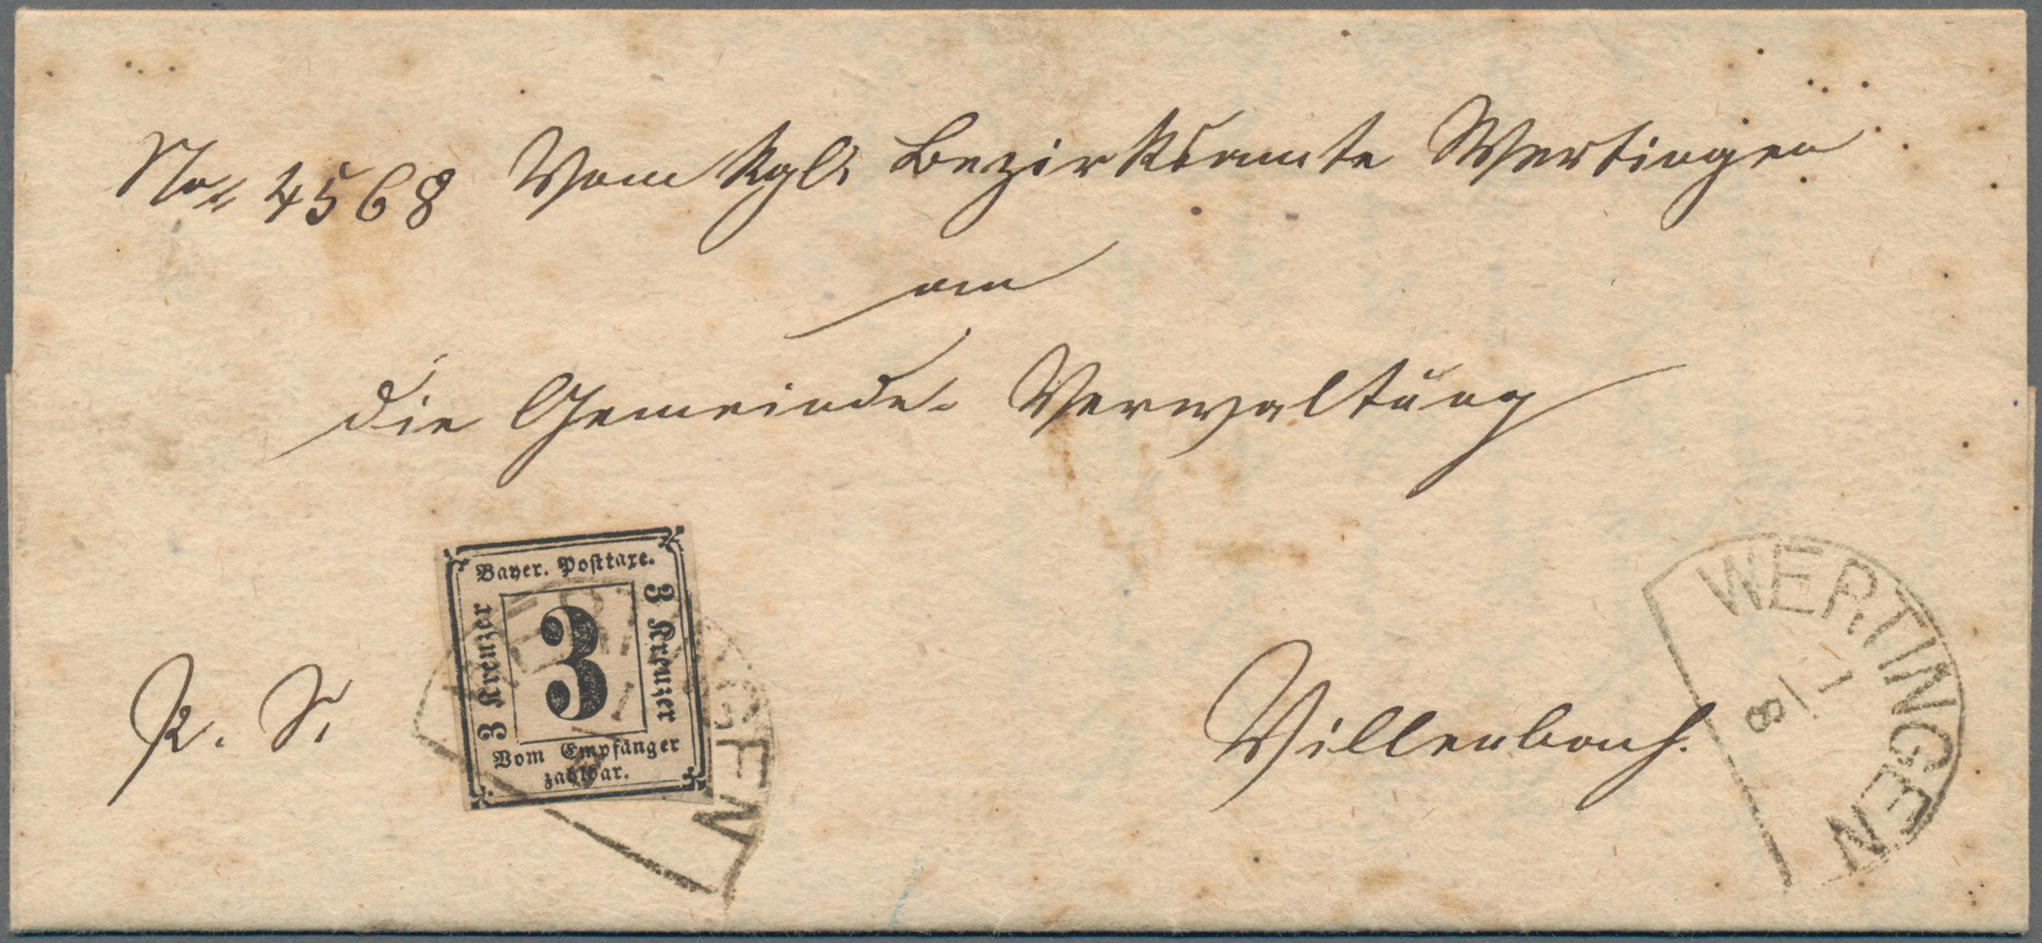 No 4568 Vom Kgl. Bezirksamte Wertingen
an
die Gemeinde-Verwaltung
R. S.
Villenbach.
Bayer. Posttaxe.
3 Kreuzer
3
3 Kreuzer
Vom Empfänger
zahlbar.
WERTINGEN
WERTINGEN
8/1